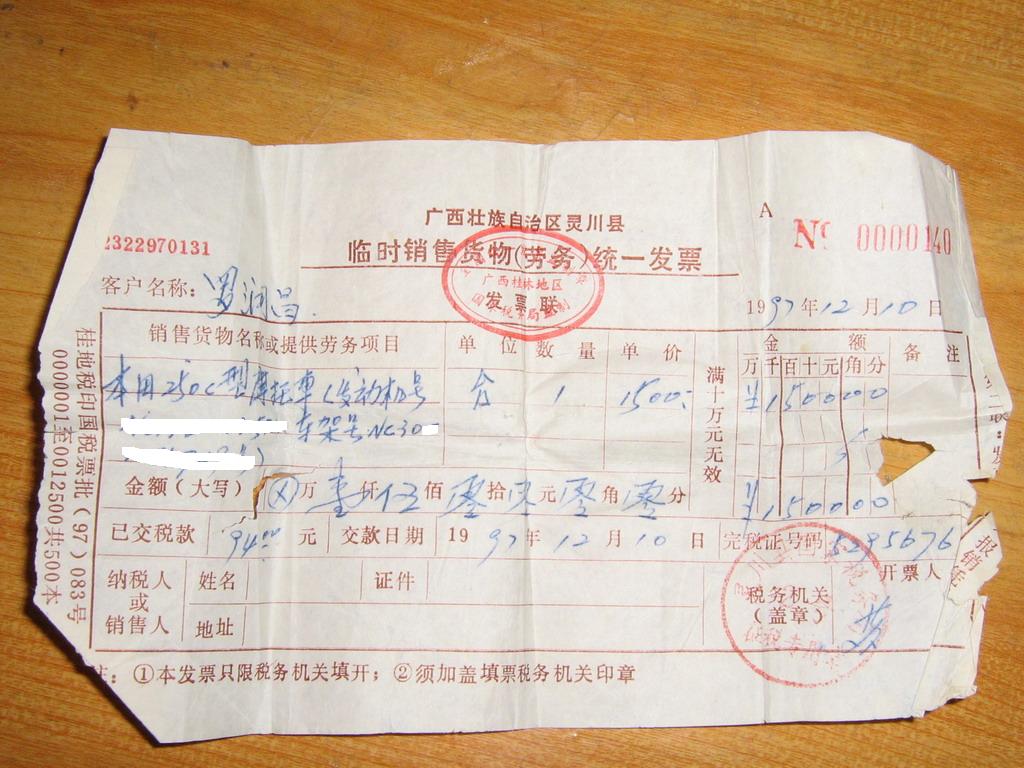 广西壮族自治区灵川县
A
№ 0000140
2322970131
临时销售货物(劳务)统一发票
广西桂林地区
发票联
客户名称: 罗润昌.
1997年12月10日
销售货物名称或提供劳务项目 单位 数量 单价 满十万元无效 金额 备注
万千百十元角分
本田250C型摩托车(发动机号 台 1 1500: ¥150000
车架号NC30
金额(大写) ⊗万壹仟伍佰零拾零元零角零分 ¥150000
已交税款 94.00 元 交款日期 1997年12月10日 完税证号码 5295676
纳税人或销售人 姓名 证件 税务机关(盖章) 开票人
地址
注: ①本发票只限税务机关填开; ②须加盖填票税务机关印章
桂地税印国税票批(97)083号
0000001至0012500共500本
报销凭